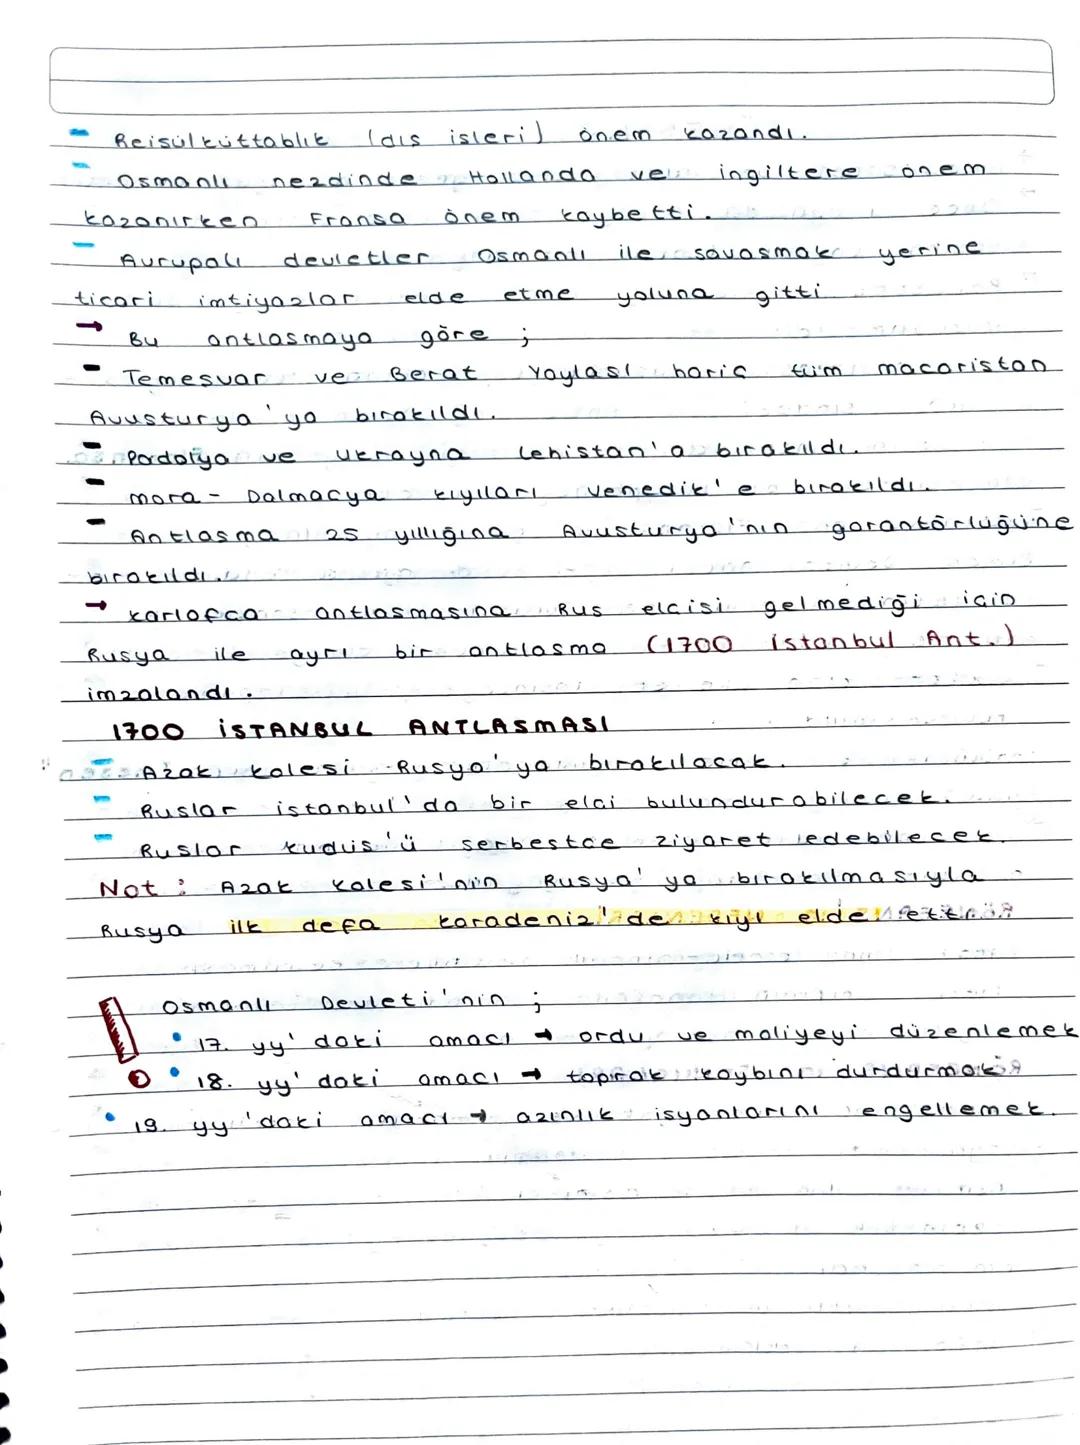 - Reisülküttablık (dış işleri) önem kazandı.
- Osmanlı nezdinde Hollanda ve ingiltere önem
kazanırken Fransa önem kaybetti.
- Avrupalı devletler Osmanlı ile savaşmak yerine
ticari imtiyazlar elde etme yoluna gitti
→ Bu antlaşmaya göre ;
- Temeşvar ve Berat Yaylası hariç tüm macaristan
Avusturya'ya bırakıldı.
- Podolya ve ukrayna Lehistan'a bırakıldı.
- mora - Dalmaçya kıyıları venedik'e bırakıldı.
- Antlaşma 25 yıllığına Avusturya'nın garantörlüğüne
bırakıldı.
→ karlofça antlaşmasına Rus elçisi gelmediği için
Rusya ile ayrı bir antlaşma (1700 istanbul Ant.)
imzalandı.
1700 İSTANBUL ANTLAŞMASI
- Azak kalesi Rusya'ya bırakılacak.
- Ruslar istanbul'da bir elçi bulundurabilecek.
- Ruslar kudüs'ü serbestçe ziyaret edebilecek.
Not : Azak kalesi'nin Rusya'ya bırakılmasıyla
Rusya ilk defa karadeniz'de kıyı elde etti.
Osmanlı Devleti'nin ;
• 17. yy'daki amacı → ordu ve maliyeyi düzenlemek
• 18. yy'daki amacı → toprak kaybını durdurmak
• 19. yy'daki amacı → azınlık isyanlarını engellemek.